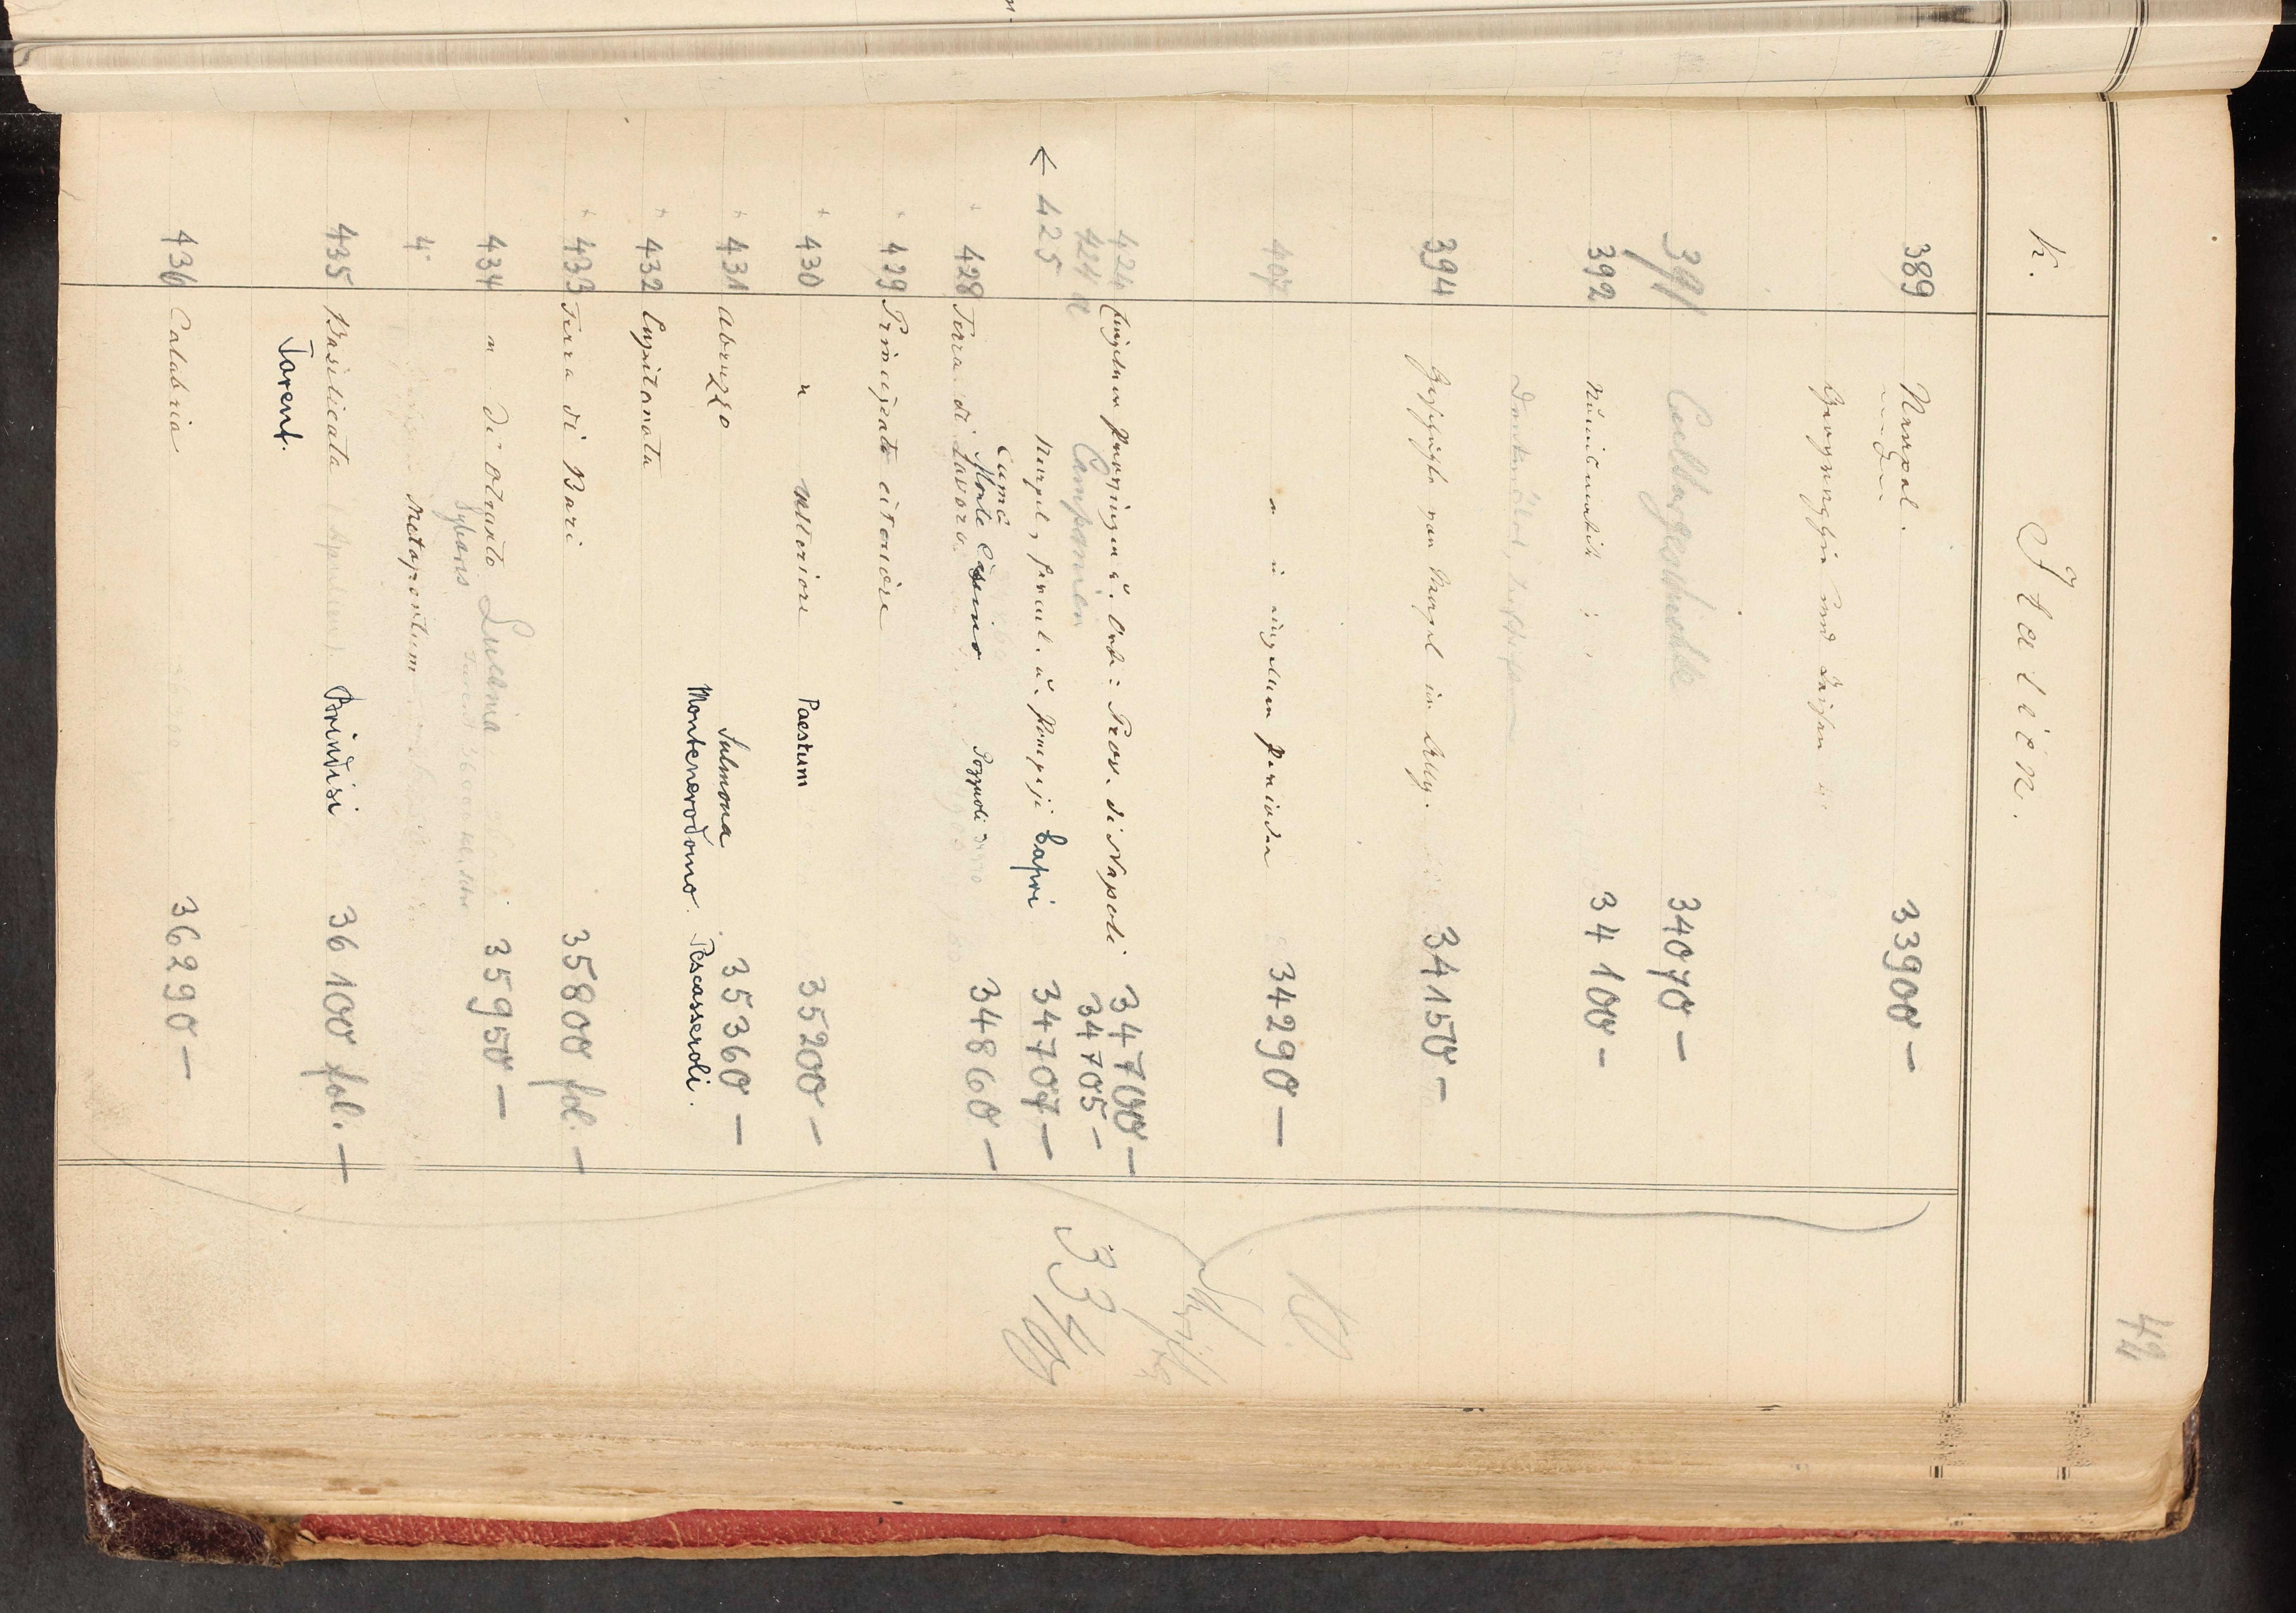 42
K. Italien.
389 Neapel. 33900 —
Geographie und Reisen
391 Culturgeschichte 34070 —
392 Numismatik 34100 —
394 Geschichte von Neapel im Allg. 34150 —
407 " in einzelnen Perioden 34290 —
424 Einzelne Provinzen u. Orte: Prov. di Napoli 34700 —
424a Campanien 34705 —
← 425 Neapel, Hercul. u. Pompeji Capri 34707 —
Cumä
Monte Casino
+ 428 Terra di Lavoro. Pozzuoli 34860 —
+ 429 Principato citeriore
+ 430 " ulteriore Paestum 35200 —
+ 431 Abruzzo Sulmona 35360 —
Montenerodomo. Pescasseroli.
+ 432 Capitanata
+ 433 Terra di Bari 35800 fol. —
434 " di Otranto Lucania 35950 —
Sybaris
Metapontum
435 Basilicata Brindisi 36100 fol. —
Tarent.
436 Calabria 36290 —